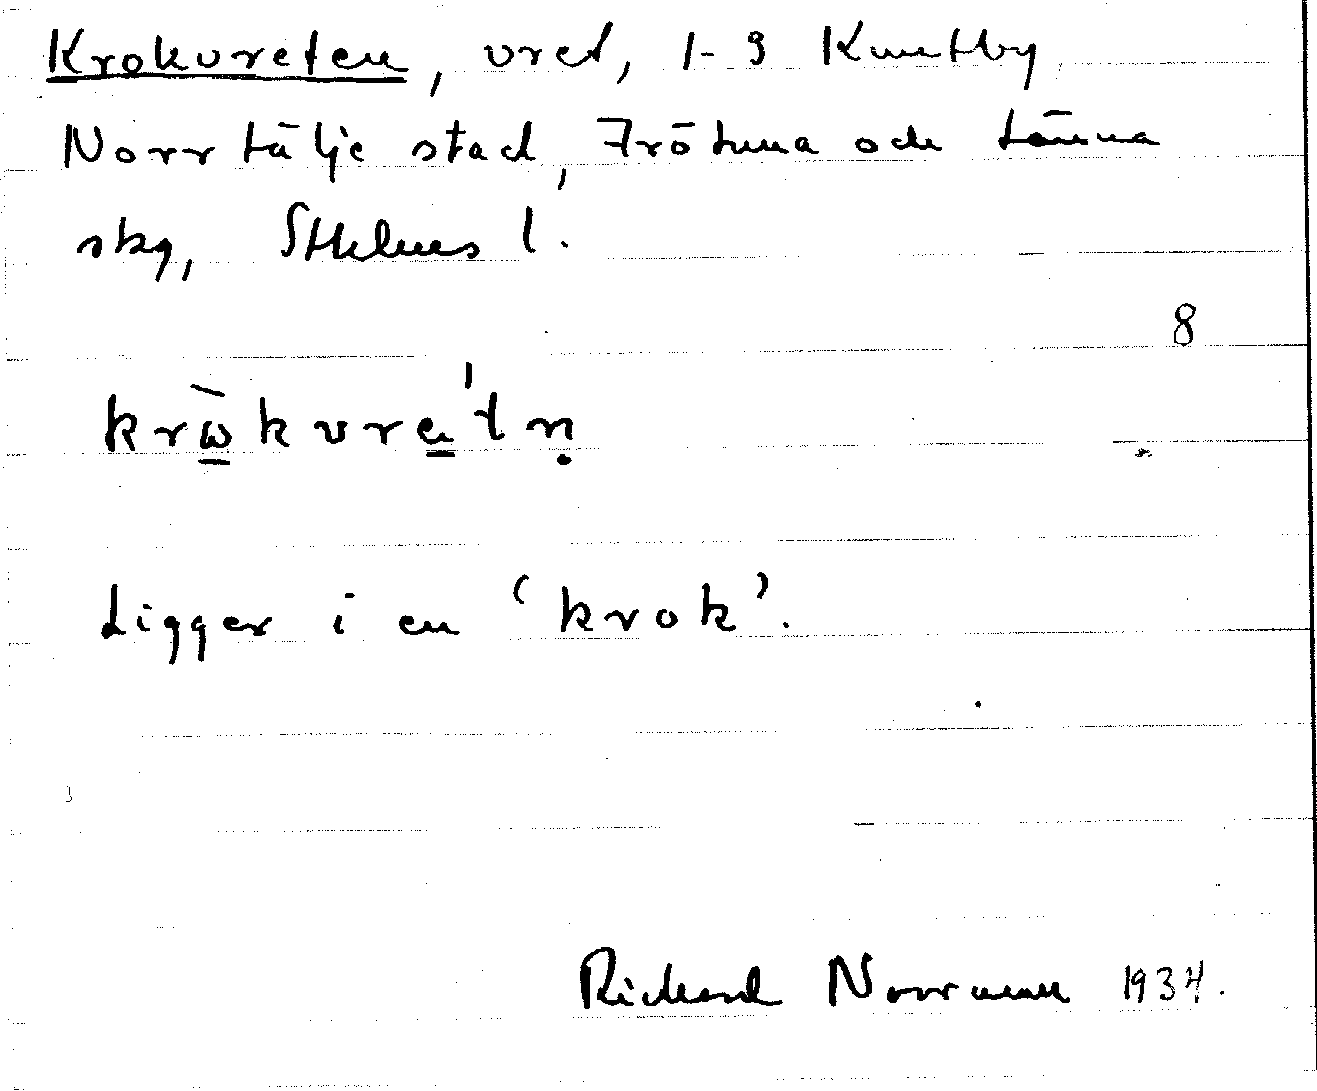 Krokvreten, vret, 1-3 Knutby
Norrtälje stad, Frötuna och Länna
skg, Sthlms l.
8
krὼkvre̲'tṇ
Ligger i en 'krok'.
Richard Norrman 1934.